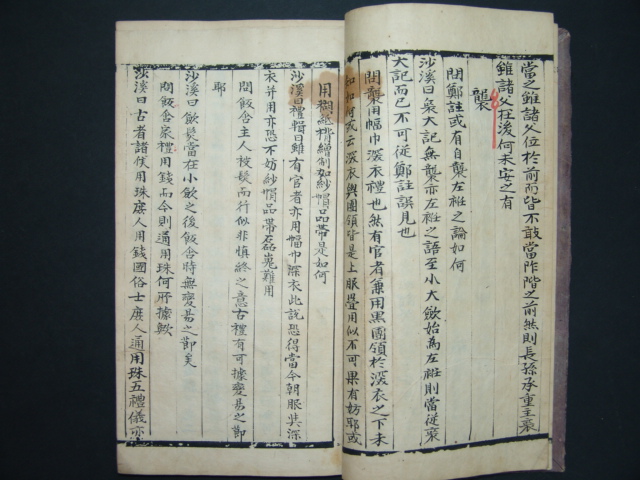 當之雖諸父位於前而皆不敢當阼階之前然則長孫承重主喪
雖諸父在後何未安之有
襲
問鄭註或有自襲左衽之論如何
沙溪曰喪大記無襲亦左衽之語至小大斂始為左衽則當從喪
大記而已不可從鄭註誤見也
問襲用幅巾深衣禮也然有官者兼用黑團領於深衣之下未
知如何或云深衣與團領皆是上服疊用似不可果有妨耶或
用網繩情繒制如紗㡌品帶是如何
沙溪曰禮輯曰雖有官者亦用幅巾深衣此說恐得當今朝服與深
衣并用亦恐不妨紗帽品帶磊嵬難用
問飯含主人被髮而行似非慎終之意古禮有可據變易之節
耶
沙溪曰斂髮當在小斂之後飯含時無變易之節矣
問飯含家禮用錢而今則通用珠何所據歟
沙溪曰古者諸侯用珠庶人用錢國俗士庶人通用珠五禮儀亦